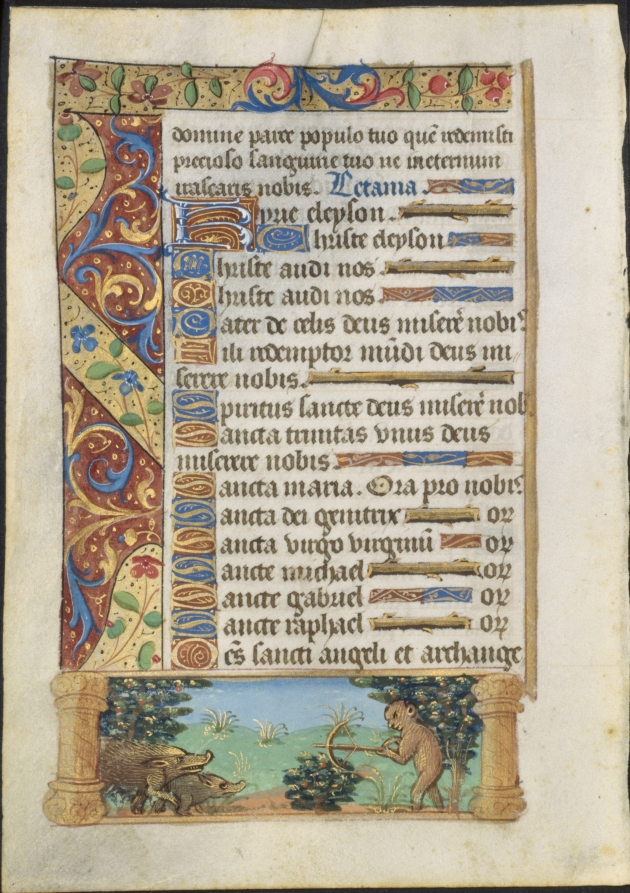 domine parce populo tuo quē redemisti
precioso sanguine tuo ne ineternum
irascaris nobis. Letania
Kyrie eleyson.
Christe eleyson
Christe audi nos
Christe audi nos
Pater de celis deus miserē nobis
Fili redemptor mūdi deus mi
serere nobis.
Spiritus sancte deus miserē nob
Sancta trinitas vnus deus
miserere nobis
Sancta maria. Ora pro nobis
Sancta dei genitrix or
Sancta virgo virginū or
Sancte michael or
Sancte gabriel or
Sancte raphael or
Oēs sancti angeli et archange